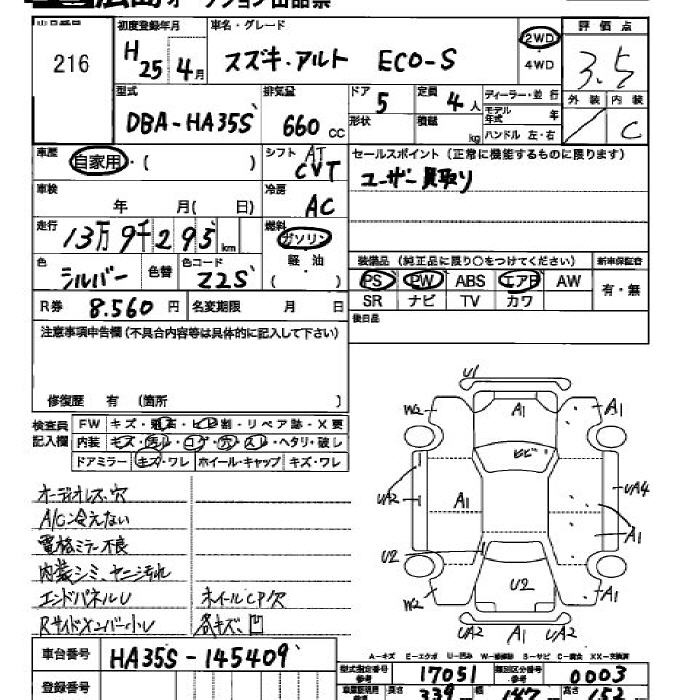 広島オークション出品票
出品番号 初度登録年月 車名・グレード 評価点
216 H25 4月 スズキ・アルト ECO-S 2WD・4WD 3.5
型式 排気量 ドア 5 定員 4人 ディーラー・並行 外装 内装
DBA-HA35S 660cc 形状 積載 kg モデル年式 年 ハンドル 左・右 C
車歴 自家用・( ) シフト AT CVT セールスポイント(正常に機能するものに限ります)
車検 年 月(日) 冷房 AC ユーザー買取り
走行 13万9千295km 燃料 ガソリン
色 シルバー 色替 色コード Z2S 軽油 ( ) 装備品(純正品に限り○をつけてください) 新車保証書
PS PW ABS エアB AW 有・無
R券 8.560円 名変期限 月 日 SR ナビ TV カワ
注意事項申告欄(不具合内容等は具体的に記入して下さい) 後日品
修復歴 有(箇所 )
検査員記入欄 FW キズ・飛石・ヒビ割・リペア跡・X要
内装 キズ・汚れ・コゲ・穴・スレ・ヘタリ・破し
ドアミラー キズ・ワレ ホイール・キャップ キズ・ワレ
オーディオレス.穴
A/C冷えない
電格ミラー不良
内装シミ、ヤニ汚れ
エンドパネルU ホイールCP欠
Rサイドメンバー小U 各キズ、凹
U1
W2 A1 A1
ヒビ
UA2 A1 UA4
A1
U2 U2
W2 W2
UA2 A1 UA2
A-キズ E-エクボ U-凹み W-補修跡 S-サビ C-腐食 XX-交換済
車台番号 HA35S-145409 型式指定番号 17051 類別区分番号 0003
登録番号 長さ 339 cm 幅 147 cm 高さ